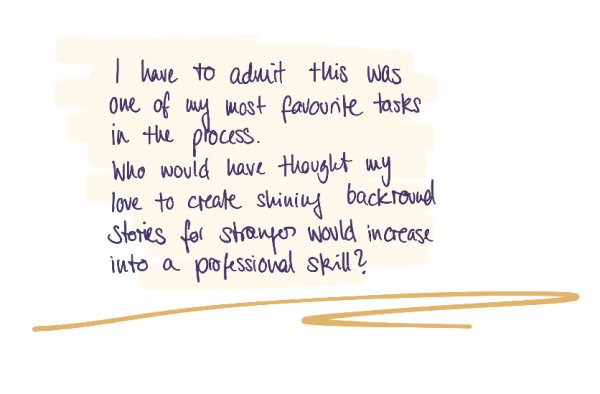 I have to admit this was
one of my most favourite tasks
in the process.
Who would have thought my
love to create shining backround
stories for stranger would increase
into a professional skill?